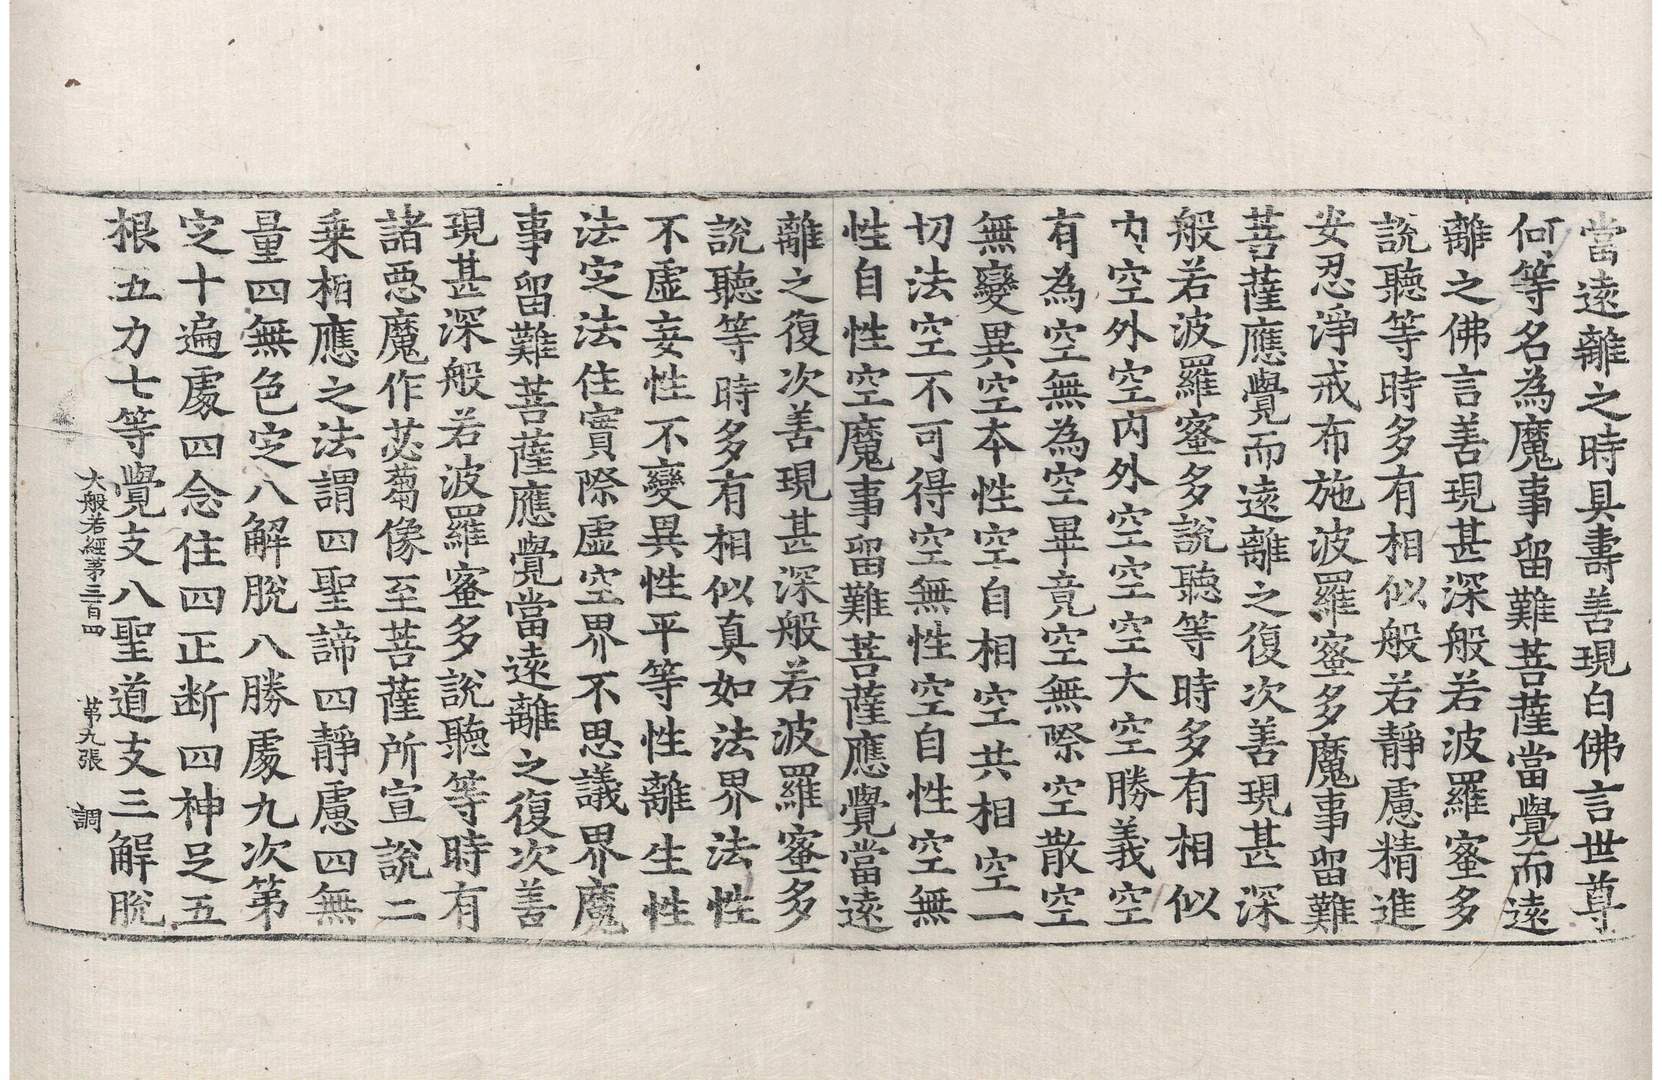 當遠離之時具壽善現白佛言世尊
何等名為魔事留難菩薩當覺而遠
離之佛言善現甚深般若波羅蜜多
說聽等時多有相似般若靜慮精進
安忍淨戒布施波羅蜜多魔事留難
菩薩應覺而遠離之復次善現甚深
般若波羅蜜多說聽等時多有相似
內空外空內外空空空大空勝義空
有為空無為空畢竟空無際空散空
無變異空本性空自相空共相空一
切法空不可得空無性空自性空無
性自性空魔事留難菩薩應覺當遠
離之復次善現甚深般若波羅蜜多
說聽等時多有相似真如法界法性
不虛妄性不變異性平等性離生性
法定法住實際虛空界不思議界魔
事留難菩薩應覺當遠離之復次善
現甚深般若波羅蜜多說聽等時有
諸惡魔作苾蒭像至菩薩所宣說二
乘相應之法謂四聖諦四靜慮四無
量四無色定八解脫八勝處九次第
定十遍處四念住四正断四神足五
根五力七等覺支八聖道支三解脫
大般若經第三百四 第九張 調